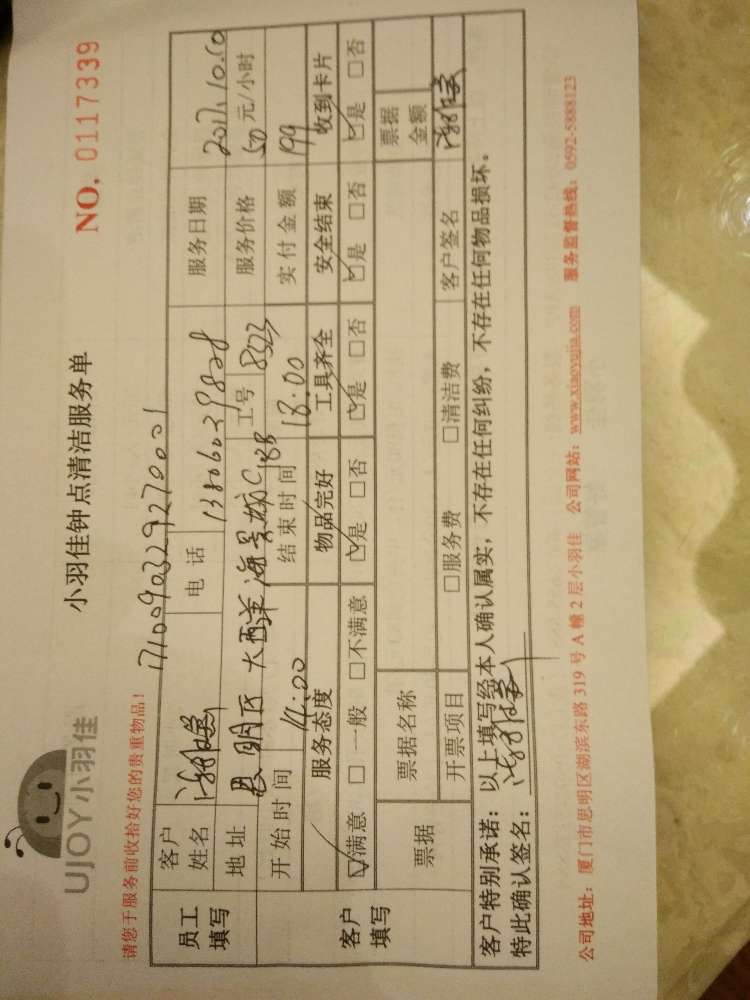 UJOY小羽佳
小羽佳钟点清洁服务单
NO. 0117339
请您于服务前收拾好您的贵重物品!
1710090329270001
员工填写
客户姓名
电 话 13806039828
服务日期 2017.10.10
地 址 思明区大西洋海景城C18B
工号 8523
服务价格 50元/小时
开始时间 14:00
结束时间 18:00
实付金额 199
客户填写
服务态度 物品完好 工具齐全 安全结束 收到卡片
☑满意 □一般 □不满意 ☑是 □否 ☑是 □否 ☑是 □否 ☑是 □否
票据
票据名称
票据金额
开票项目 □服务费 □清洁费
客户签名
客户特别承诺:以上填写经本人确认属实,不存在任何纠纷,不存在任何物品损坏。
特此确认签名:
公司地址:厦门市思明区湖滨东路 319 号 A 幢 2 层小羽佳 公司网站:www.xiaoyujia.com 服务监督热线:0592-5888123